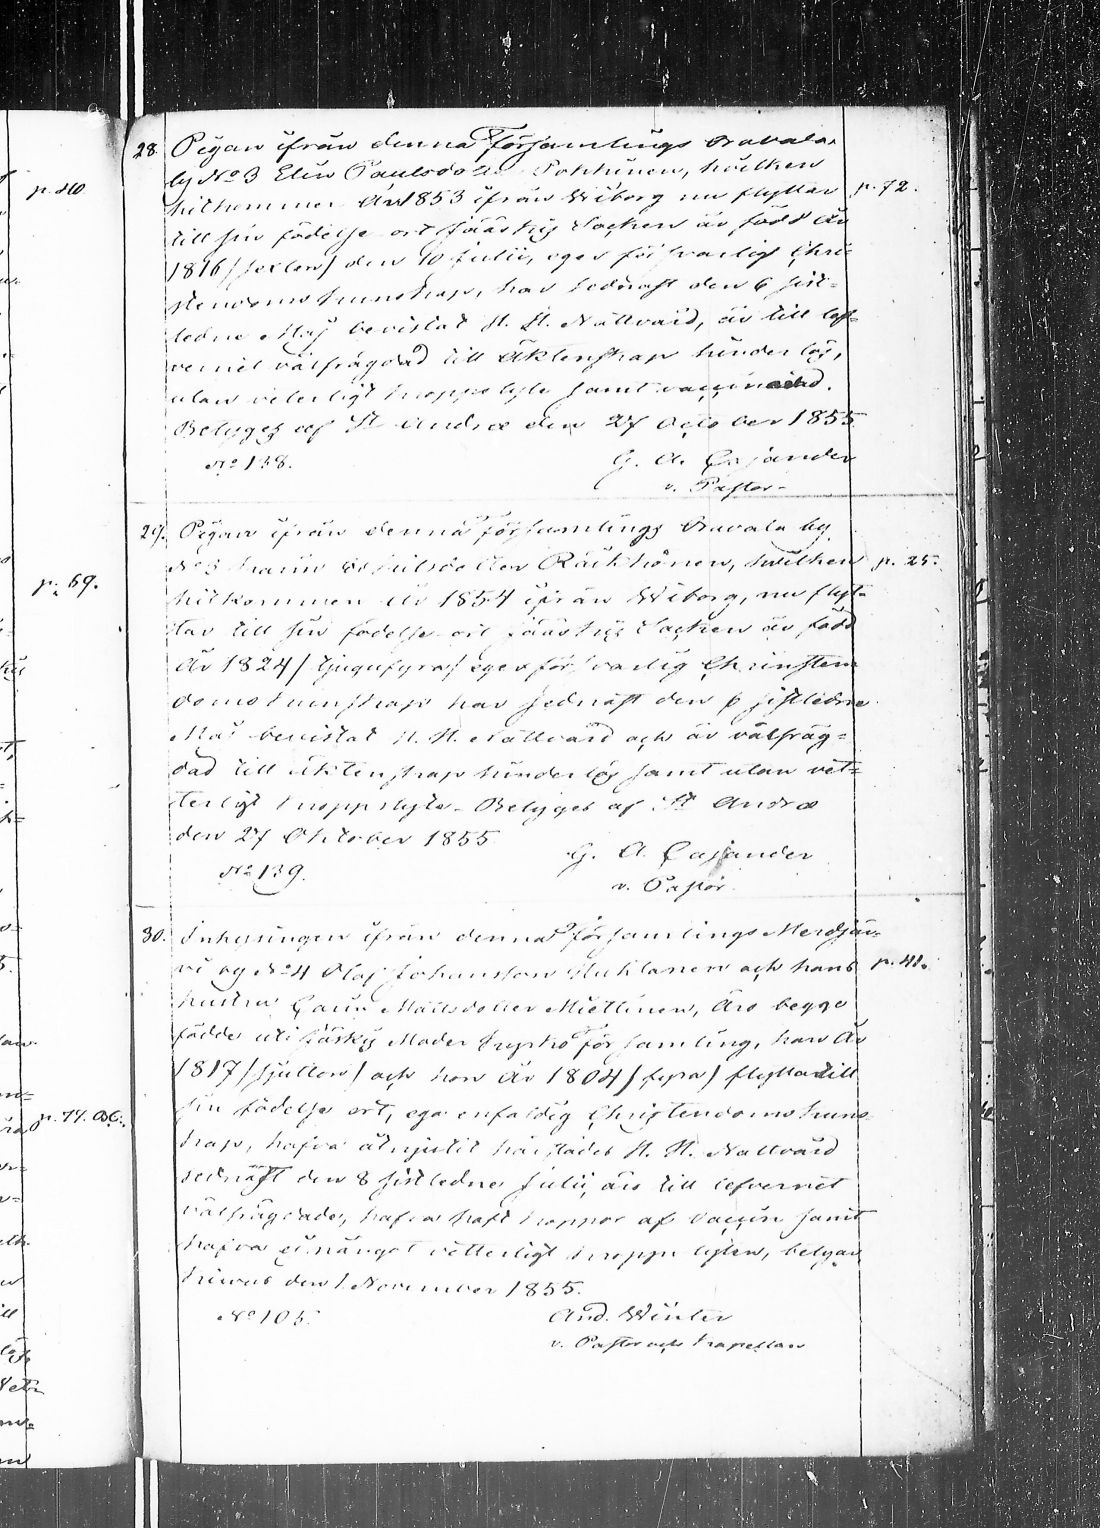 p. 40
p. 69.
p. 77. O.C.
28. Pigan ifrån denna Församlings Oravala
by No 3 Elin Paulsdotter Pokkinen, hvilken
hitkommen År 1853 ifrån Wiborg nu flyttar p. 72.
till sin födelse ort Jääskis Socken är född År
1816 /sexton/ den 10 Julii, eger försvarlig Chri-
stendoms kunskap, har sednast den 6 sist-
ledne Maj bevistat H. H. Nattvard, är till lef-
vernet välfrägdad till Äktenskap hinderlös,
utan veterligt kroppslyte samt vaccinerad.
Betygas af St Andræ den 27 October 1855
No 138. G. A. Cajander
v. Pastor.
29. Pigan ifrån denna Församlings Oravala by
No 3 Karin Nilsdotter Räikkönen, hvilken p. 25.
hitkommen År 1854 ifrån Wiborg, nu flyt-
tar till sin födelse ort Jääskis Socken är född
År 1824 /tjugufyra/ eger försvarlig Christen
doms kunskap har sednast den 6 sistledne
Maj bevistat H. H. Nattvard och är välfräg-
dad till äktenskap hinderlös samt utan vet-
terligt kroppslyte. Betygas af St Andræ
den 27 Oktober 1855
No 139. G. A. Cajander
v. Pastor.
30. Inhysingen ifrån denna Församlings
by No 4 Olof Johansson och hans p. 41.
hustru Carin Mattsdotter Miettinen, Äro begge
födde uti Jäskis Moder Kyrko Församling, han År
1817 /sjutton/ och hon År 1804 /fyra/ flytta till
sin födelse ort, ega enfaldig Christendoms kuns-
kap, hafva åtnjutit härstädes H. H. Nattvard
sednast den 8 sistledne Julii, äro till lefvernet
välfrägdade, hafva haft koppor af vaccin samt
hafva ej något vetterligt kropps lyten, betygar
den 1 November 1855.
No 105. And. Winter
v. Pastor och kapellan